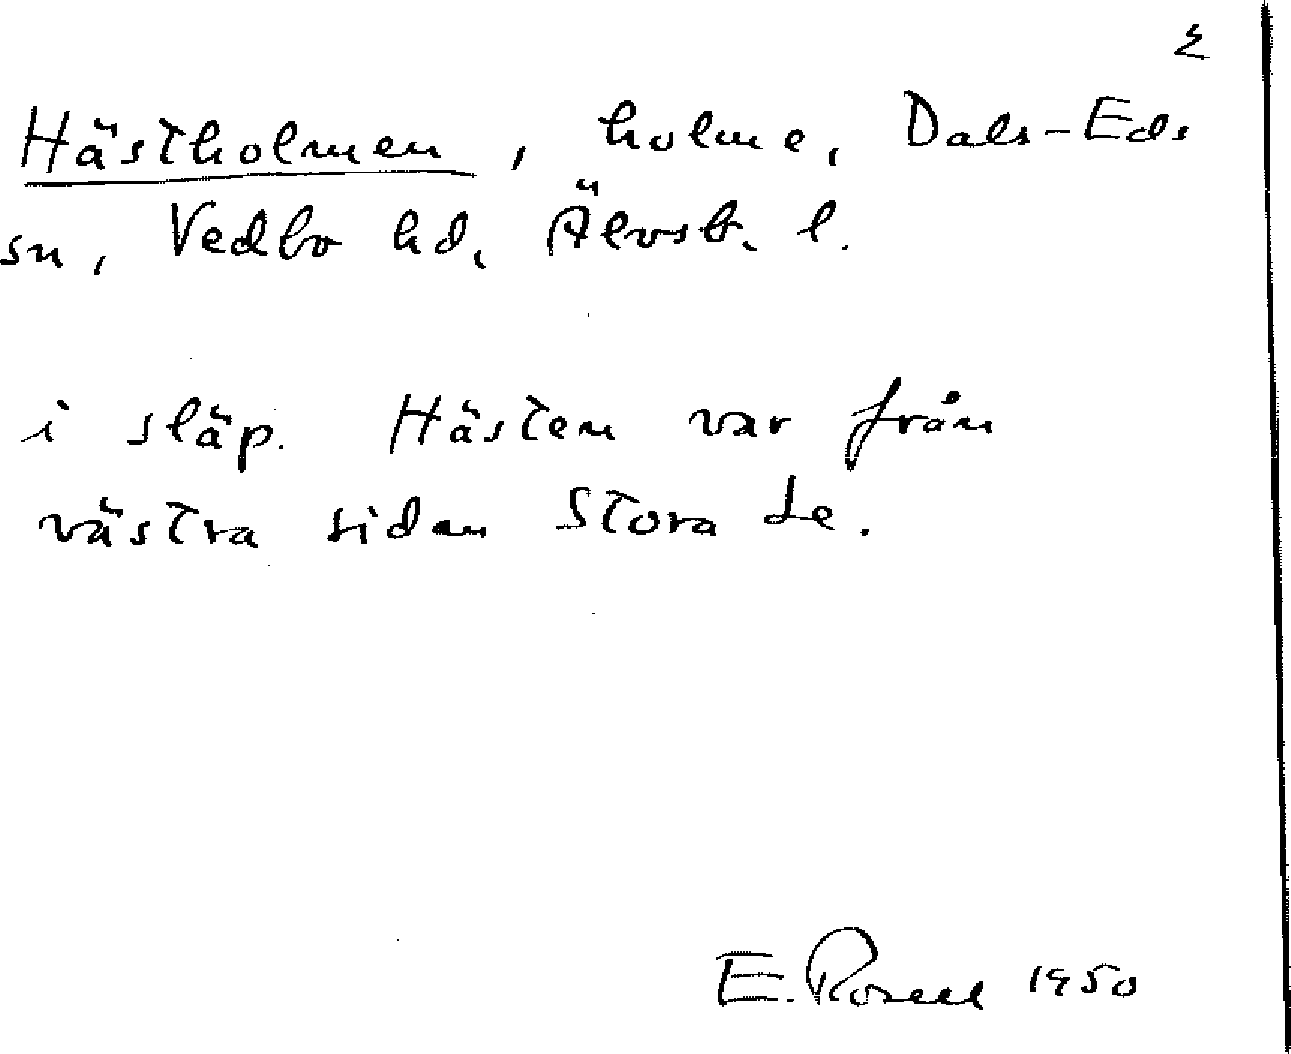 2
Hästholmen, holme, Dals-Eds
sn, Vedbo hd, Älvsb. l.
i släp. Hästen var från
västra sidan Stora Le.
E. Rosell 1950